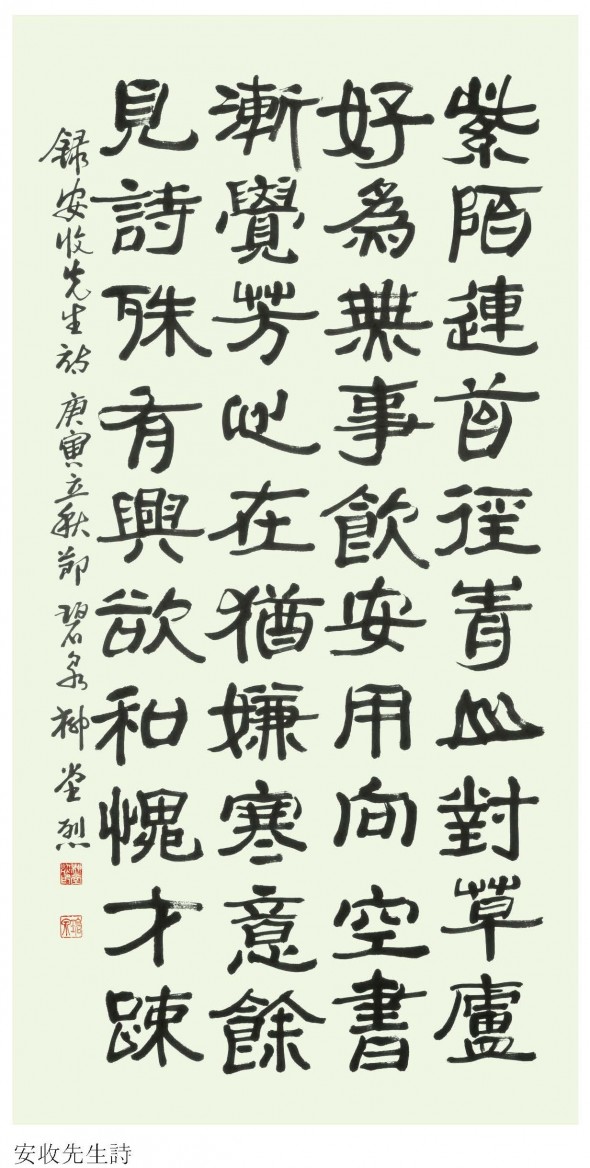 紫陌連首徑青山對草廬
好爲無事飲安用向空書
漸覺芳心在猶嫌寒意餘
見詩殊有興欲和愧才踈
録安收先生詩 庚寅立秋節 碧泉 柳堂烈
安收先生詩